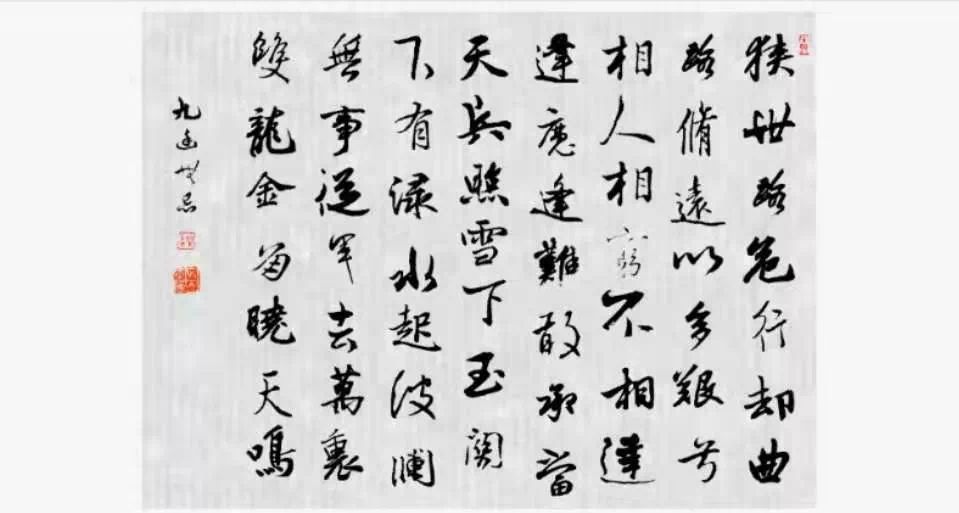 狭世路危行却曲
路脩遠以多艱兮
相人相不相達
達應逢難敢承當
天兵照雪下玉関
下有渌水起波瀾
無事従軍去萬裏
雙龍金曉天鳴
九無忌